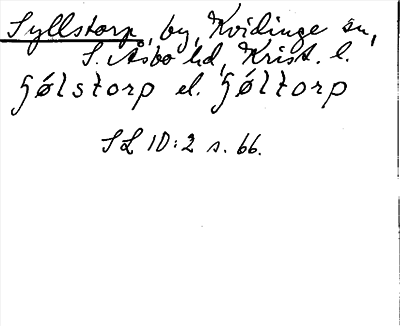 Syllstorp, by, Kvidinge sn,
S. Åsbo hd, Krist. l.
Sølstorp el. Søltorp
SL 10:2 s. 66.